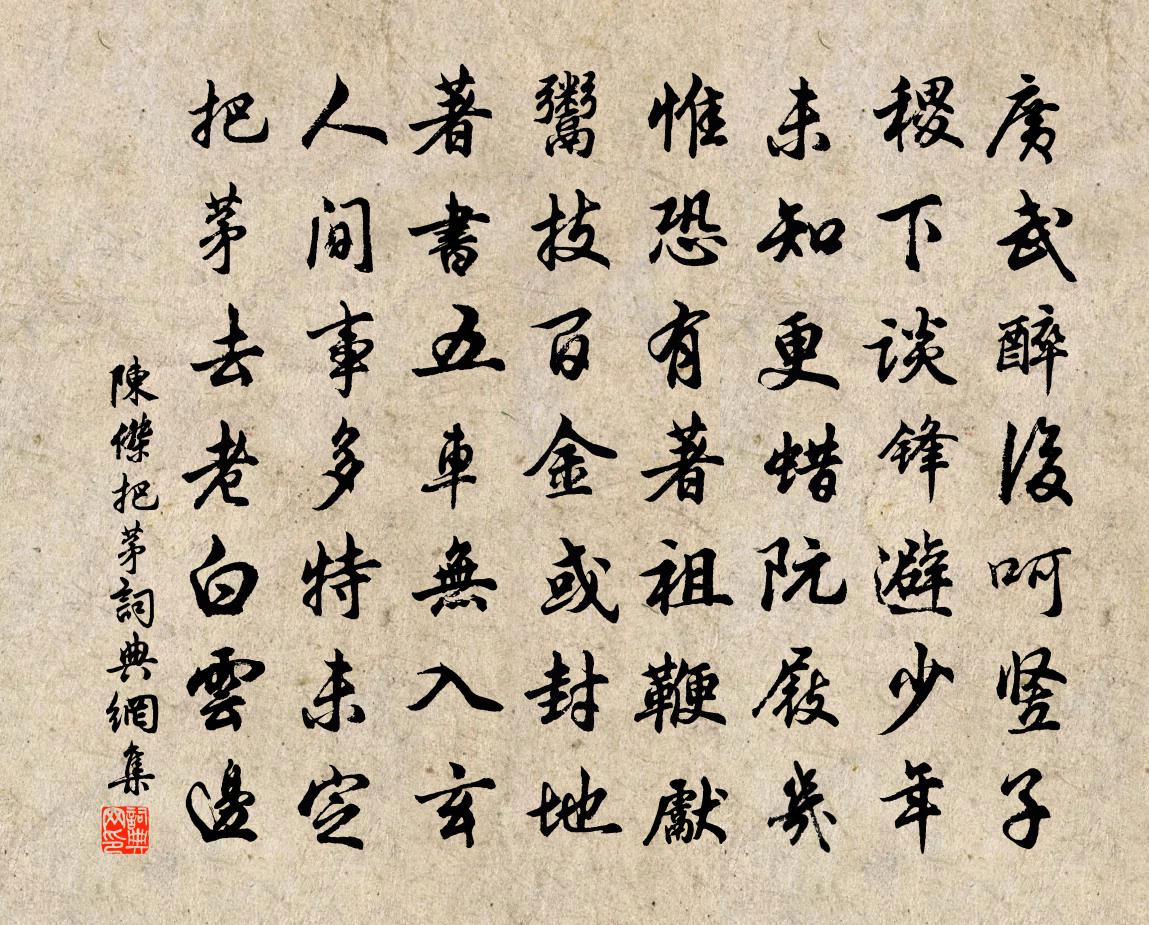 廣武醉後呵竖子
稷下談鋒避少年
未知更蜡阮屐幾
惟恐有著祖鞭獻
鬻技百金或封地
著書五車無入玄
人間事多特未定
把茅去老白雲邊
陳傑把茅詞典網集
詞典網印